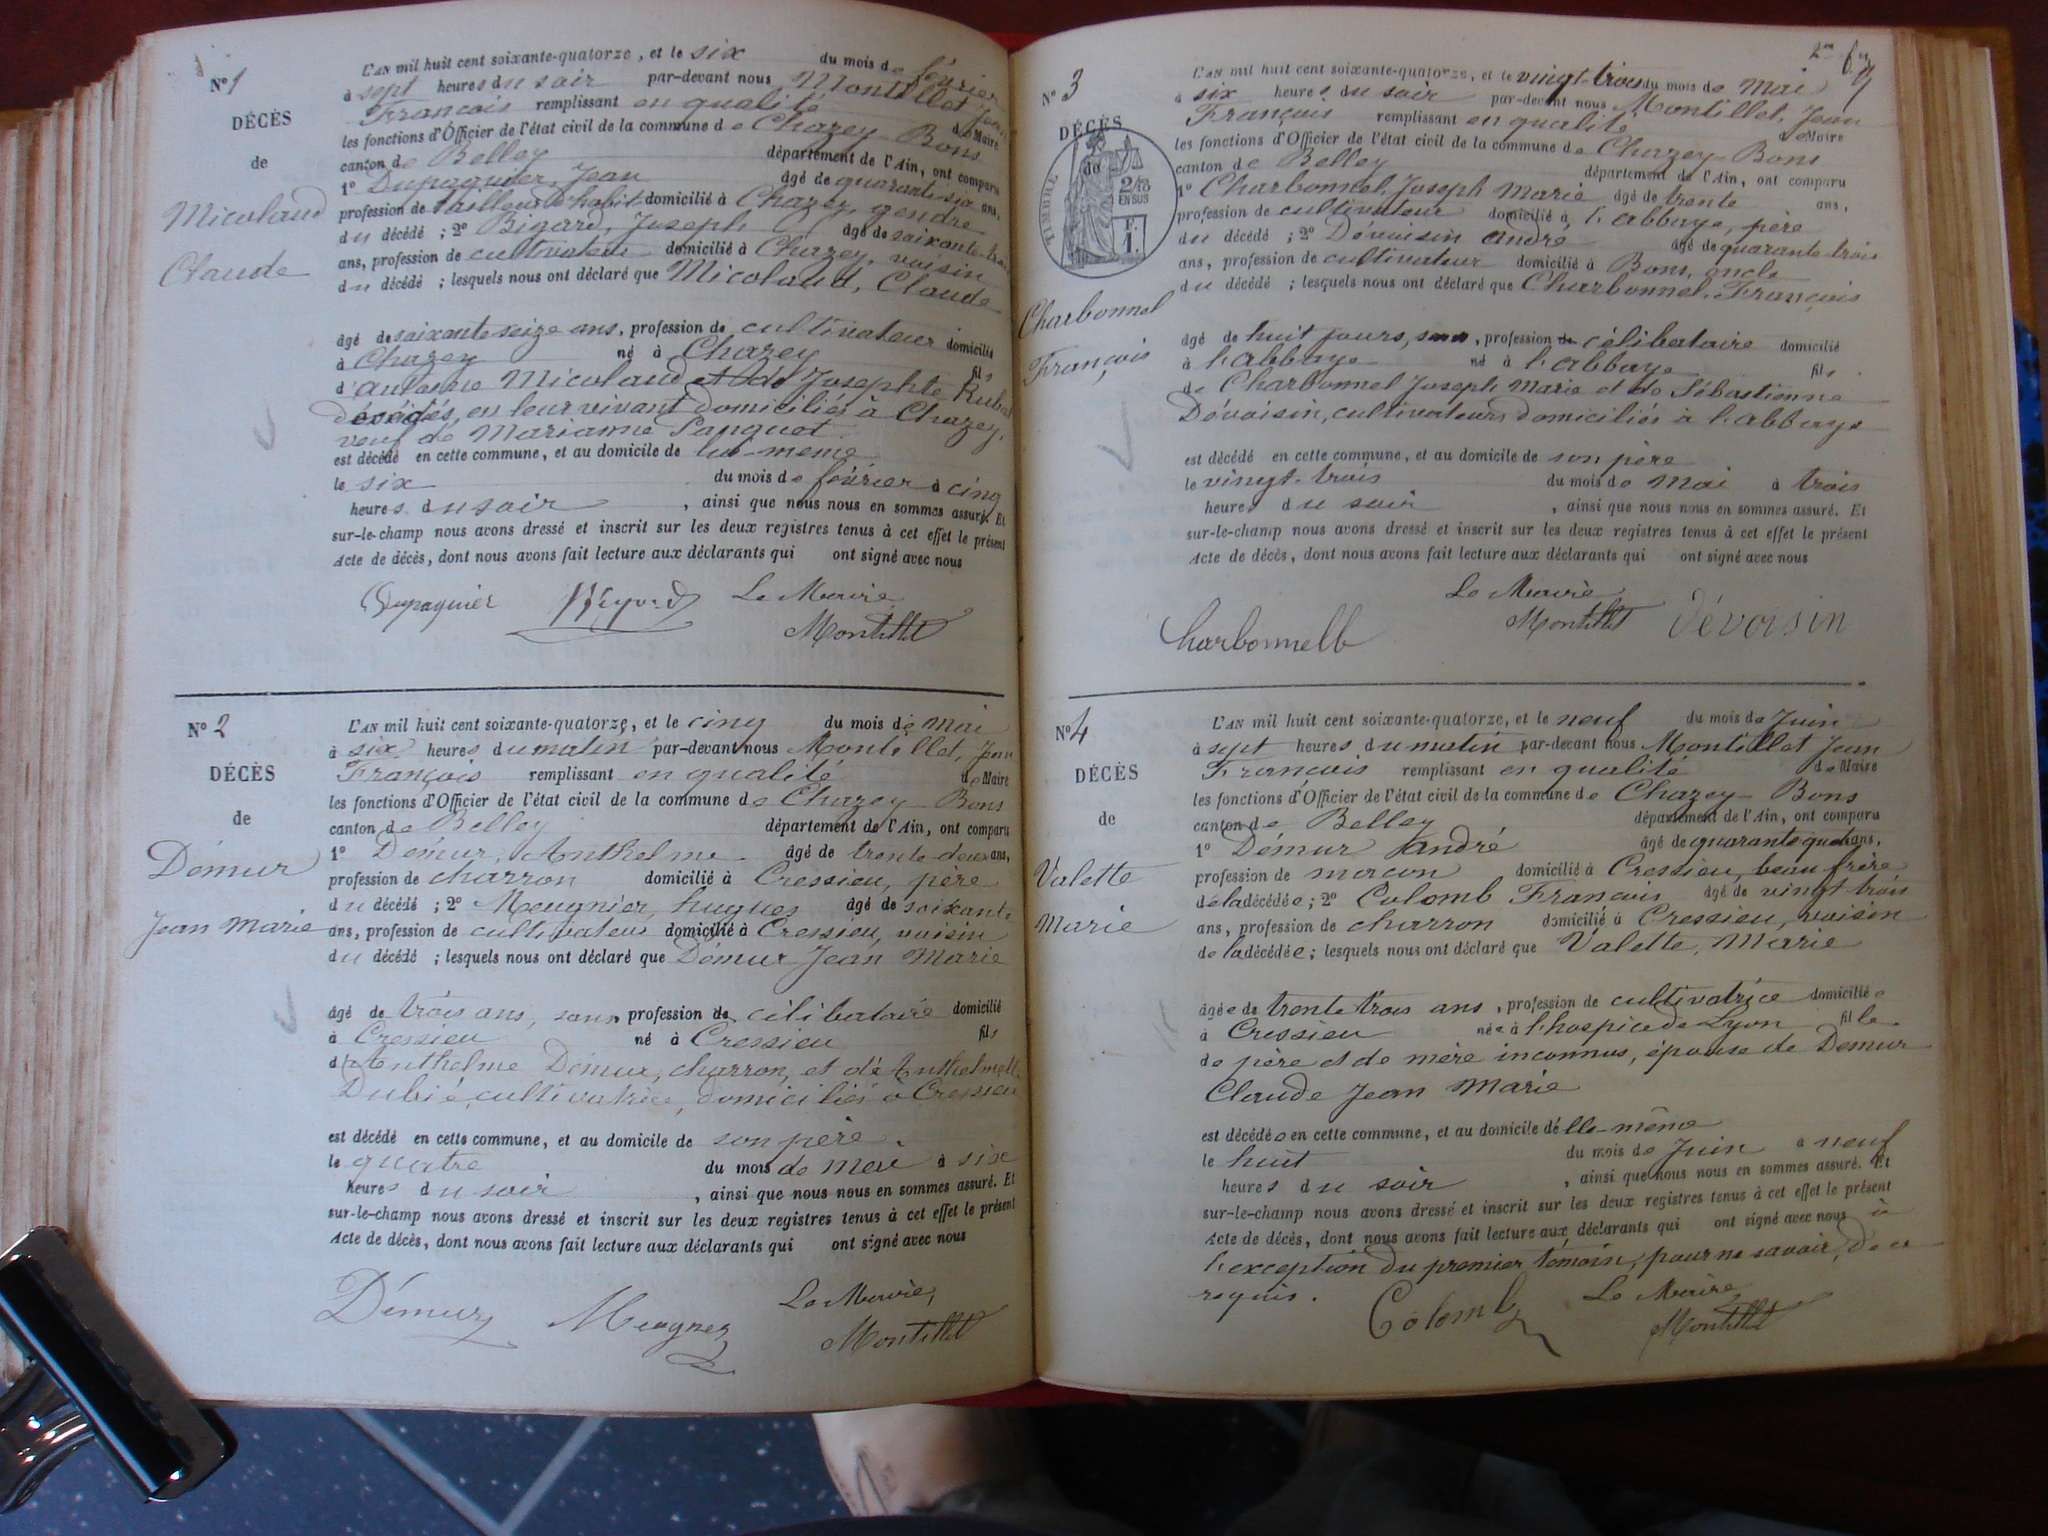 N° 1
DÉCÈS
de
Micolaud
Claude
L'AN mil huit cent soixante-quatorze, et le six du mois de février
à sept heures du soir par-devant nous Montillet Jean
François remplissant en qualité de Maire
les fonctions d'Officier de l'état civil de la commune de Chazey-Bons
canton de Belley département de l'Ain, ont comparu
1° Dupaquier, Jean âgé de quarante-six ans,
profession de tailleur d'habit domicilié à Chazey, gendre
du décédé ; 2° Bigard, Joseph âgé de soixante-trois
ans, profession de cultivateur domicilié à Chazey, voisin
du décédé ; lesquels nous ont déclaré que Micolaud, Claude
âgé de soixante seize ans, profession de cultivateur domicilié
à Chazey né à Chazey fils
d'antoine Micolaud et de Josephte Rubat
décédés, en leur vivant domiciliés à Chazey,
veuf de Marianne Panquet.
est décédé en cette commune, et au domicile de lui-même
le six du mois de février à cinq
heures du soir, ainsi que nous nous en sommes assuré. Et
sur-le-champ nous avons dressé et inscrit sur les deux registres tenus à cet effet le présent
Acte de décès, dont nous avons fait lecture aux déclarants qui ont signé avec nous
Dupaquier Le Maire
Montillet
N° 2
DÉCÈS
de
Démur
Jean Marie
L'AN mil huit cent soixante-quatorze, et le cinq du mois de mai
à six heures du matin par-devant nous Montillet, Jean
François remplissant en qualité de Maire
les fonctions d'Officier de l'état civil de la commune de Chazey-Bons
canton de Belley département de l'Ain, ont comparu
1° Démur, Anthelme âgé de trente-deux ans,
profession de charron domicilié à Cressieu, père
du décédé ; 2° Meugnier, hugues âgé de soixante
ans, profession de cultivateur domicilié à Cressieu, voisin
du décédé ; lesquels nous ont déclaré que Démur Jean Marie
âgé de trois ans, sans profession de célibataire domicilié
à Cressieu né à Cressieu fils
d'Anthelme Démur, charron, et de
Dubié, cultivatrice, domiciliés à Cressieu
est décédé en cette commune, et au domicile de son père.
le quatre du mois de mai à six
heures du soir, ainsi que nous nous en sommes assuré. Et
sur-le-champ nous avons dressé et inscrit sur les deux registres tenus à cet effet le présent
Acte de décès, dont nous avons fait lecture aux déclarants qui ont signé avec nous
Démur Le Maire,
Montillet
N° 3
DÉCÈS
de
TIMBRE
2/10
EN SUS
F.
1.
Charbonnel
François
L'AN mil huit cent soixante-quatorze, et le vingt-trois du mois de Mai
à six heures du soir par-devant nous Montillet, Jean
François remplissant en qualité de Maire
les fonctions d'Officier de l'état civil de la commune de Chazey-Bons
canton de Belley département de l'Ain, ont comparu
1° Charbonnel, Joseph Marie âgé de trente ans,
profession de cultivateur domicilié à l'abbaye, père
du décédé ; 2° Dévoisin andré âgé de quarante-trois
ans, profession de cultivateur domicilié à Bons, oncle
du décédé ; lesquels nous ont déclaré que Charbonnel, François
âgé de huit jours, sans, profession de célibataire domicilié
à l'abbaye né à l'abbaye fils
de Charbonnel Joseph Marie et de Sébastienne
Dévoisin, cultivateurs domiciliés à l'abbaye
est décédé en cette commune, et au domicile de son père
le vingt-trois du mois de Mai à trois
heures du soir, ainsi que nous nous en sommes assuré. Et
sur-le-champ nous avons dressé et inscrit sur les deux registres tenus à cet effet le présent
Acte de décès, dont nous avons fait lecture aux déclarants qui ont signé avec nous
Le Maire
Charbonnell Montillet dévoisin
N° 4
DÉCÈS
de
Valette
Marie
L'AN mil huit cent soixante-quatorze, et le neuf du mois de Juin
à sept heures du matin par-devant nous Montillet Jean
François remplissant en qualité de Maire
les fonctions d'Officier de l'état civil de la commune de Chazey-Bons
canton de Belley département de l'Ain, ont comparu
1° Démur andré âgé de quarante quatre ans,
profession de maçon domicilié à Cressieu, beau frère
de la décédée ; 2° Colomb François âgé de vingt-trois
ans, profession de charron domicilié à Cressieu, voisin
de la décédée ; lesquels nous ont déclaré que Valette, Marie
âgée de trente trois ans, profession de cultivatrice domiciliée
à Cressieu née à l'hospice de Lyon fille
de père et de mère inconnus, épouse de Demur
Claude Jean Marie
est décédée en cette commune, et au domicile d'elle-même
le huit du mois de Juin à neuf
heures du soir, ainsi que nous nous en sommes assuré. Et
sur-le-champ nous avons dressé et inscrit sur les deux registres tenus à cet effet le présent
Acte de décès, dont nous avons fait lecture aux déclarants qui ont signé avec nous à
l'exception du premier témoin, pour ne savoir, de ce
requis. Colomb Le Maire
Montillet